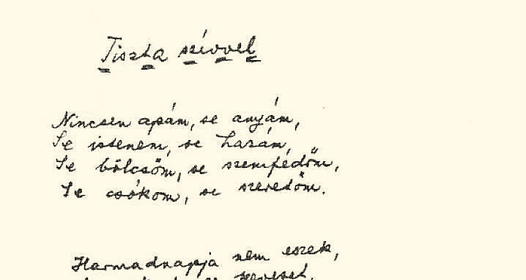 Tiszta szívvel
Nincsen apám, se anyám,
Se istenem, se hazám,
Se bölcsőm, se szemfedőm,
Se csókom, se szeretőm.
Harmadnapja nem eszek,
se keveset.